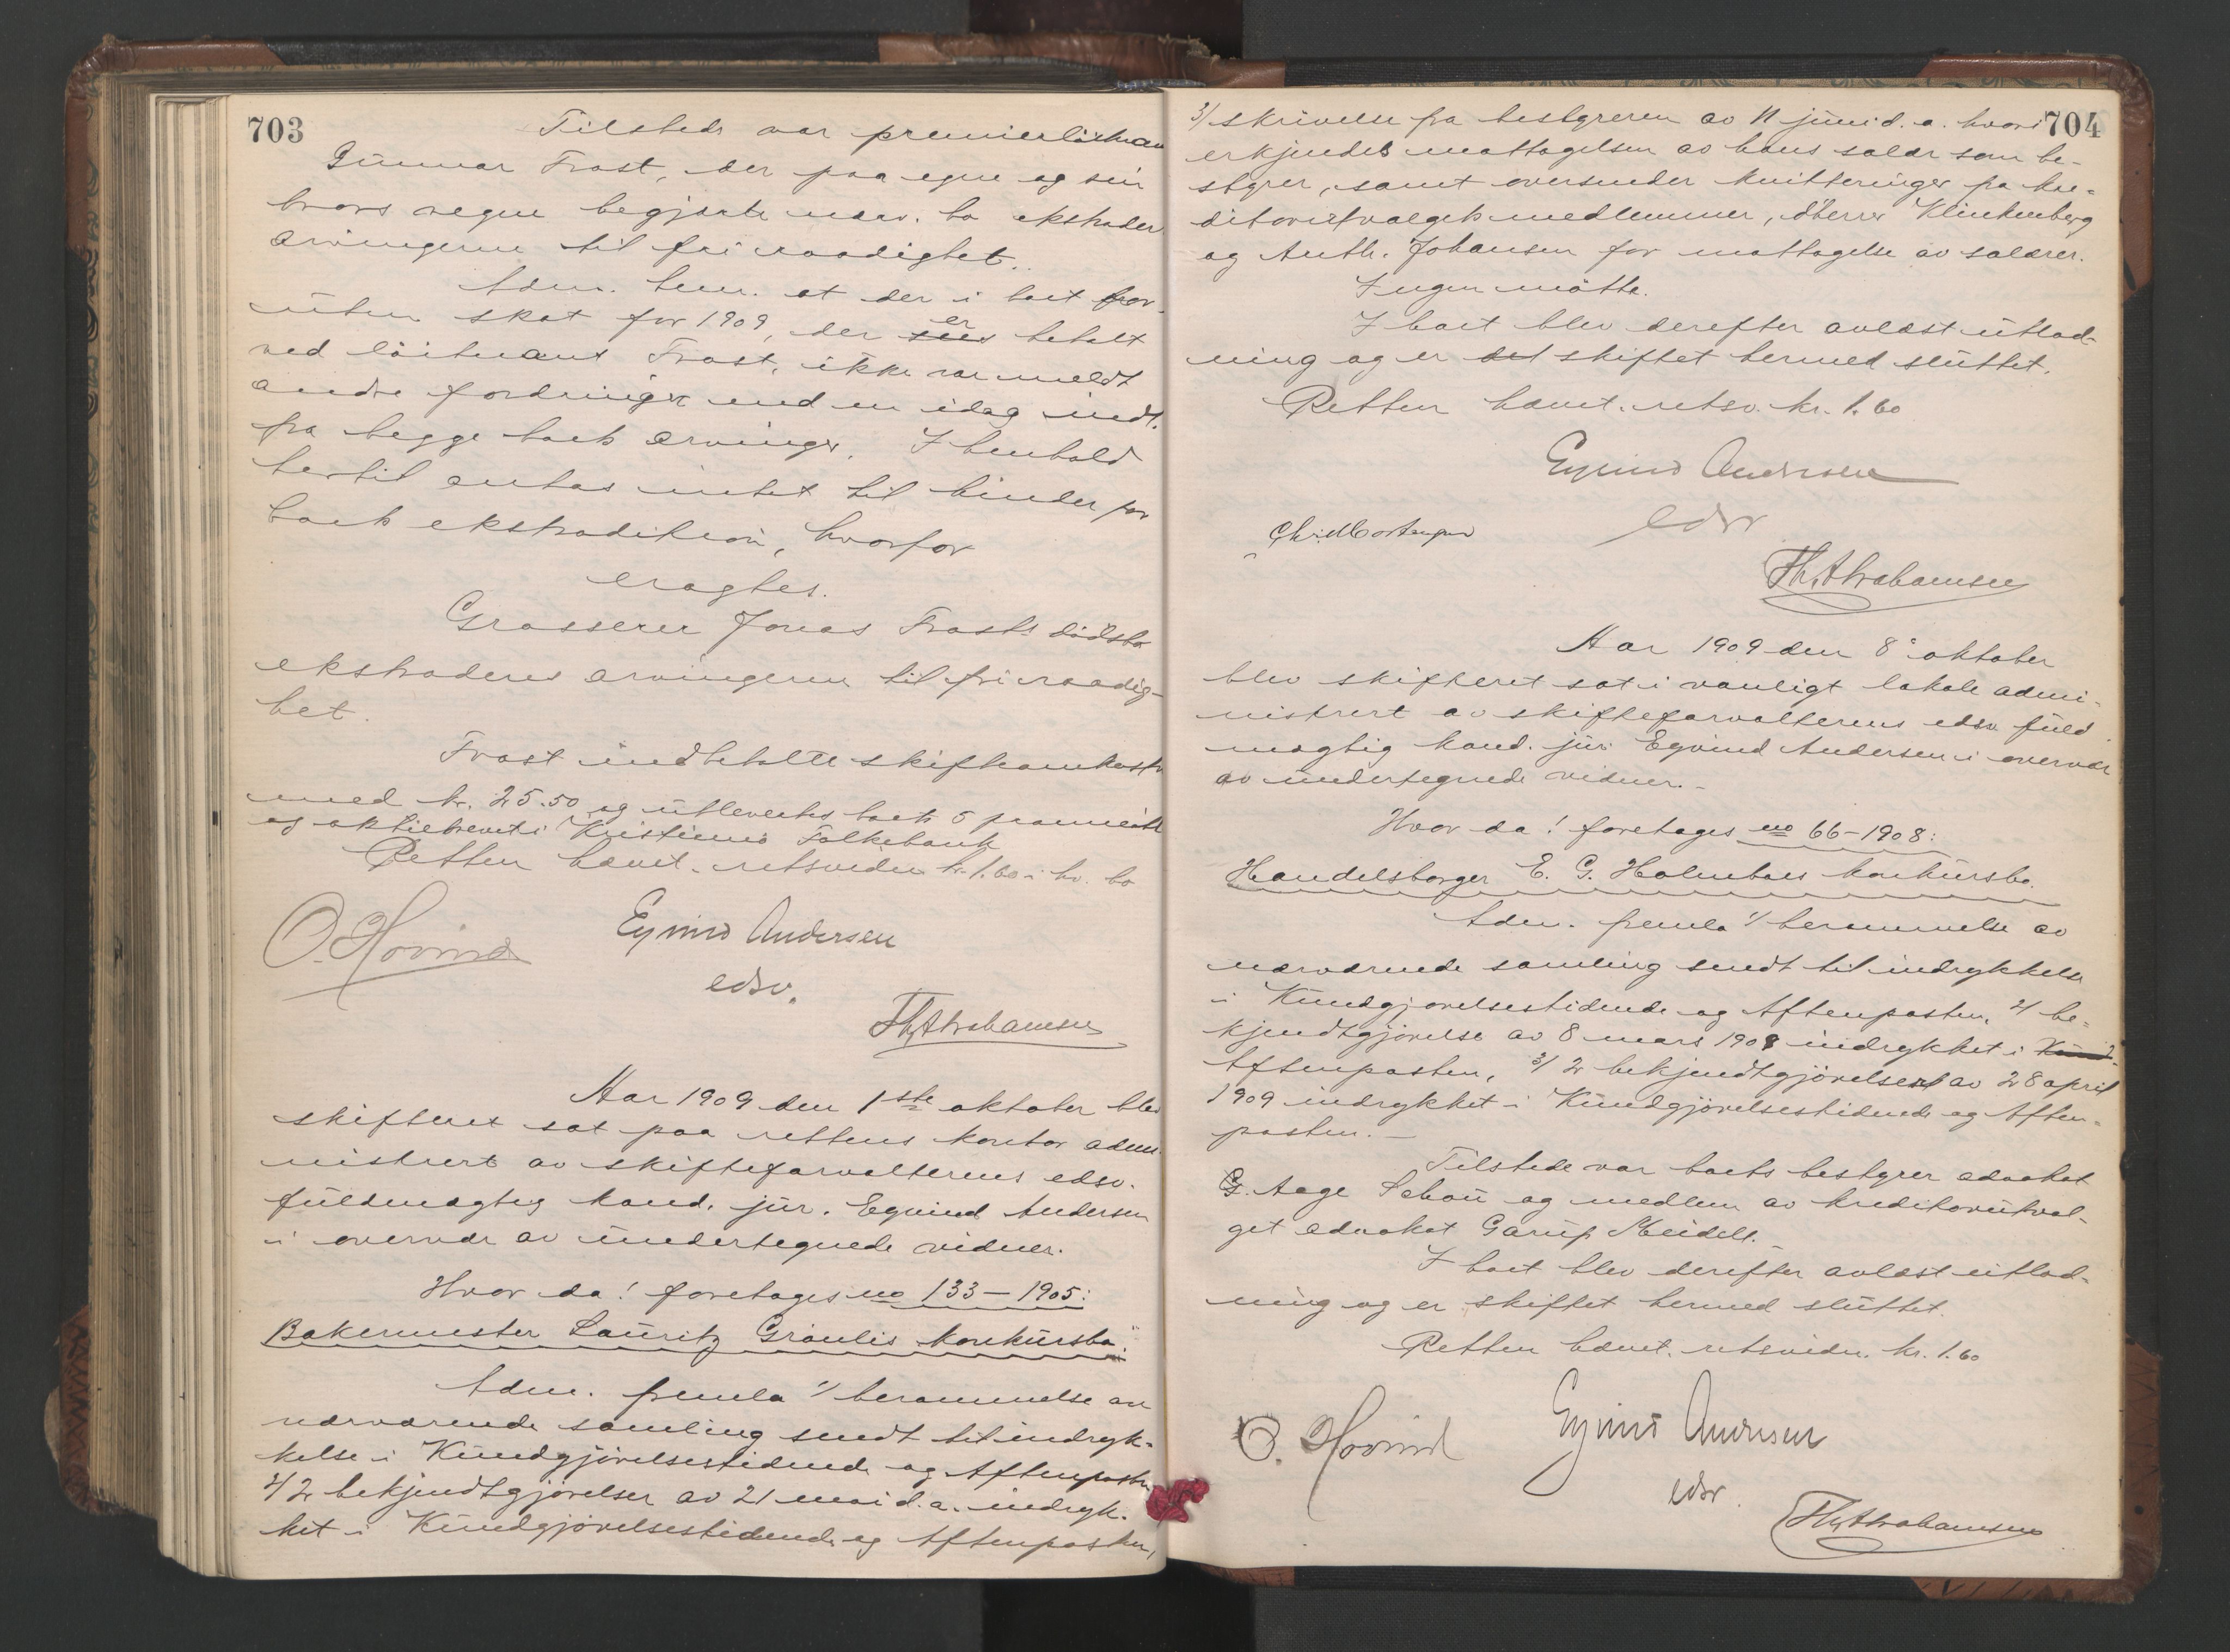 703
Tilstede var premierløitnan
Gunnar Frost, der paa egne og sin
brors vegne begjærte nærv. bo ekstrader
arvingerne til fri raadighet.
Adm. bem. at der i boet for-
uten skat for 1909, der er betalt
ved löitnant Frost, ikke var meldt
andre fordringer end en idag indt.
fra begge boets arvinger. I henhold
hertil antas intet til hinder for
boets ekstradition, hvorfor
eragtes.
Grosserer Jonas Frosts dödsbo
ekstraderes arvingerne til fri raadig-
het.
Frost indbetalte skifteomkostn
med kr. 25.50 og utleveredes boets 5
og aktiebrevet i Kristiania Folkebank
Retten hævet. retsvidn kr. 1.60 i hv. bo
O. Hovind
Eyvind Andersen
edsv.
Th. Abrahamsen
Aar 1909 den 1ste oktober blev
skifteret sat paa rettens kontor admi
nistrert av skifteforvalterens edsv.
fuldmægtig kand. jur. Eyvind Andersen
i overvær av undertegnede vidner.
Hvor da! foretages no 133 – 1905:
Bakermester Lauritz Grönlis konkursbo.
Adm. fremla 1/ berammelse av
nærværende samling sendt til indryk-
kelse i Kundgjörelsestidende og Aftenposten
2/ 2 bekjendtgjörelser av 21 mai d.a. indryk-
ket i Kundgjörelsestidende og Aftenposten,
704
3/ skrivelse fra bestyreren av 11 juni d.a. hvori
erkjendes mottagelsen av hans salær som be-
styrer, samt oversender kvitteringer fra kre-
ditorutvalgets medlemmer, d'herrer Klinkenberg
og Anth. Johansen for mottagelse av salærer.
Ingen mötte.
I boet blev derefter avlæst utlod-
ning og er det skiftet hermed sluttet.
Retten hævet. retsv. kr. 1.60
Eyvind Andersen
edsv
Chr. Mortensen
Th. Abrahamsen
Aar 1909 den 8' oktober
blev skifteret sat i vanligt lokale admi-
nistrert av skifteforvalterens edsv. fuld
mægtig kand. jur. Eyvind Andersen i overvær
av undertegnede vidner.-
Hvor da! foretages no 66 – 1908:
Handelsborger E. G. Holmboes konkursbo.
Adm. fremla 1/ berammelse av
nærværende samling sendt til indrykkelse
i Kundgjørelsestidende og Aftenposten, 2/ be-
kjendtgjörelse av 8 mars 1909 indrykket i Kund-
Aftenposten, 3/ 2 bekjendtgjörelser av 28 april
1909 indrykket i Kundgjörelsestidende og Aften-
posten.-
Tilstede var boets bestyrer advokat
G. Aage Schou og medlem av kreditorutval-
get advokat Garup Meidell.
I boet blev derefter avlæst utlod-
ning og er skiftet hermed sluttet.
Retten hævet. retsvidn. kr. 1.60
O. Hovind
Eyvind Andersen
edsv.
Th. Abrahamsen